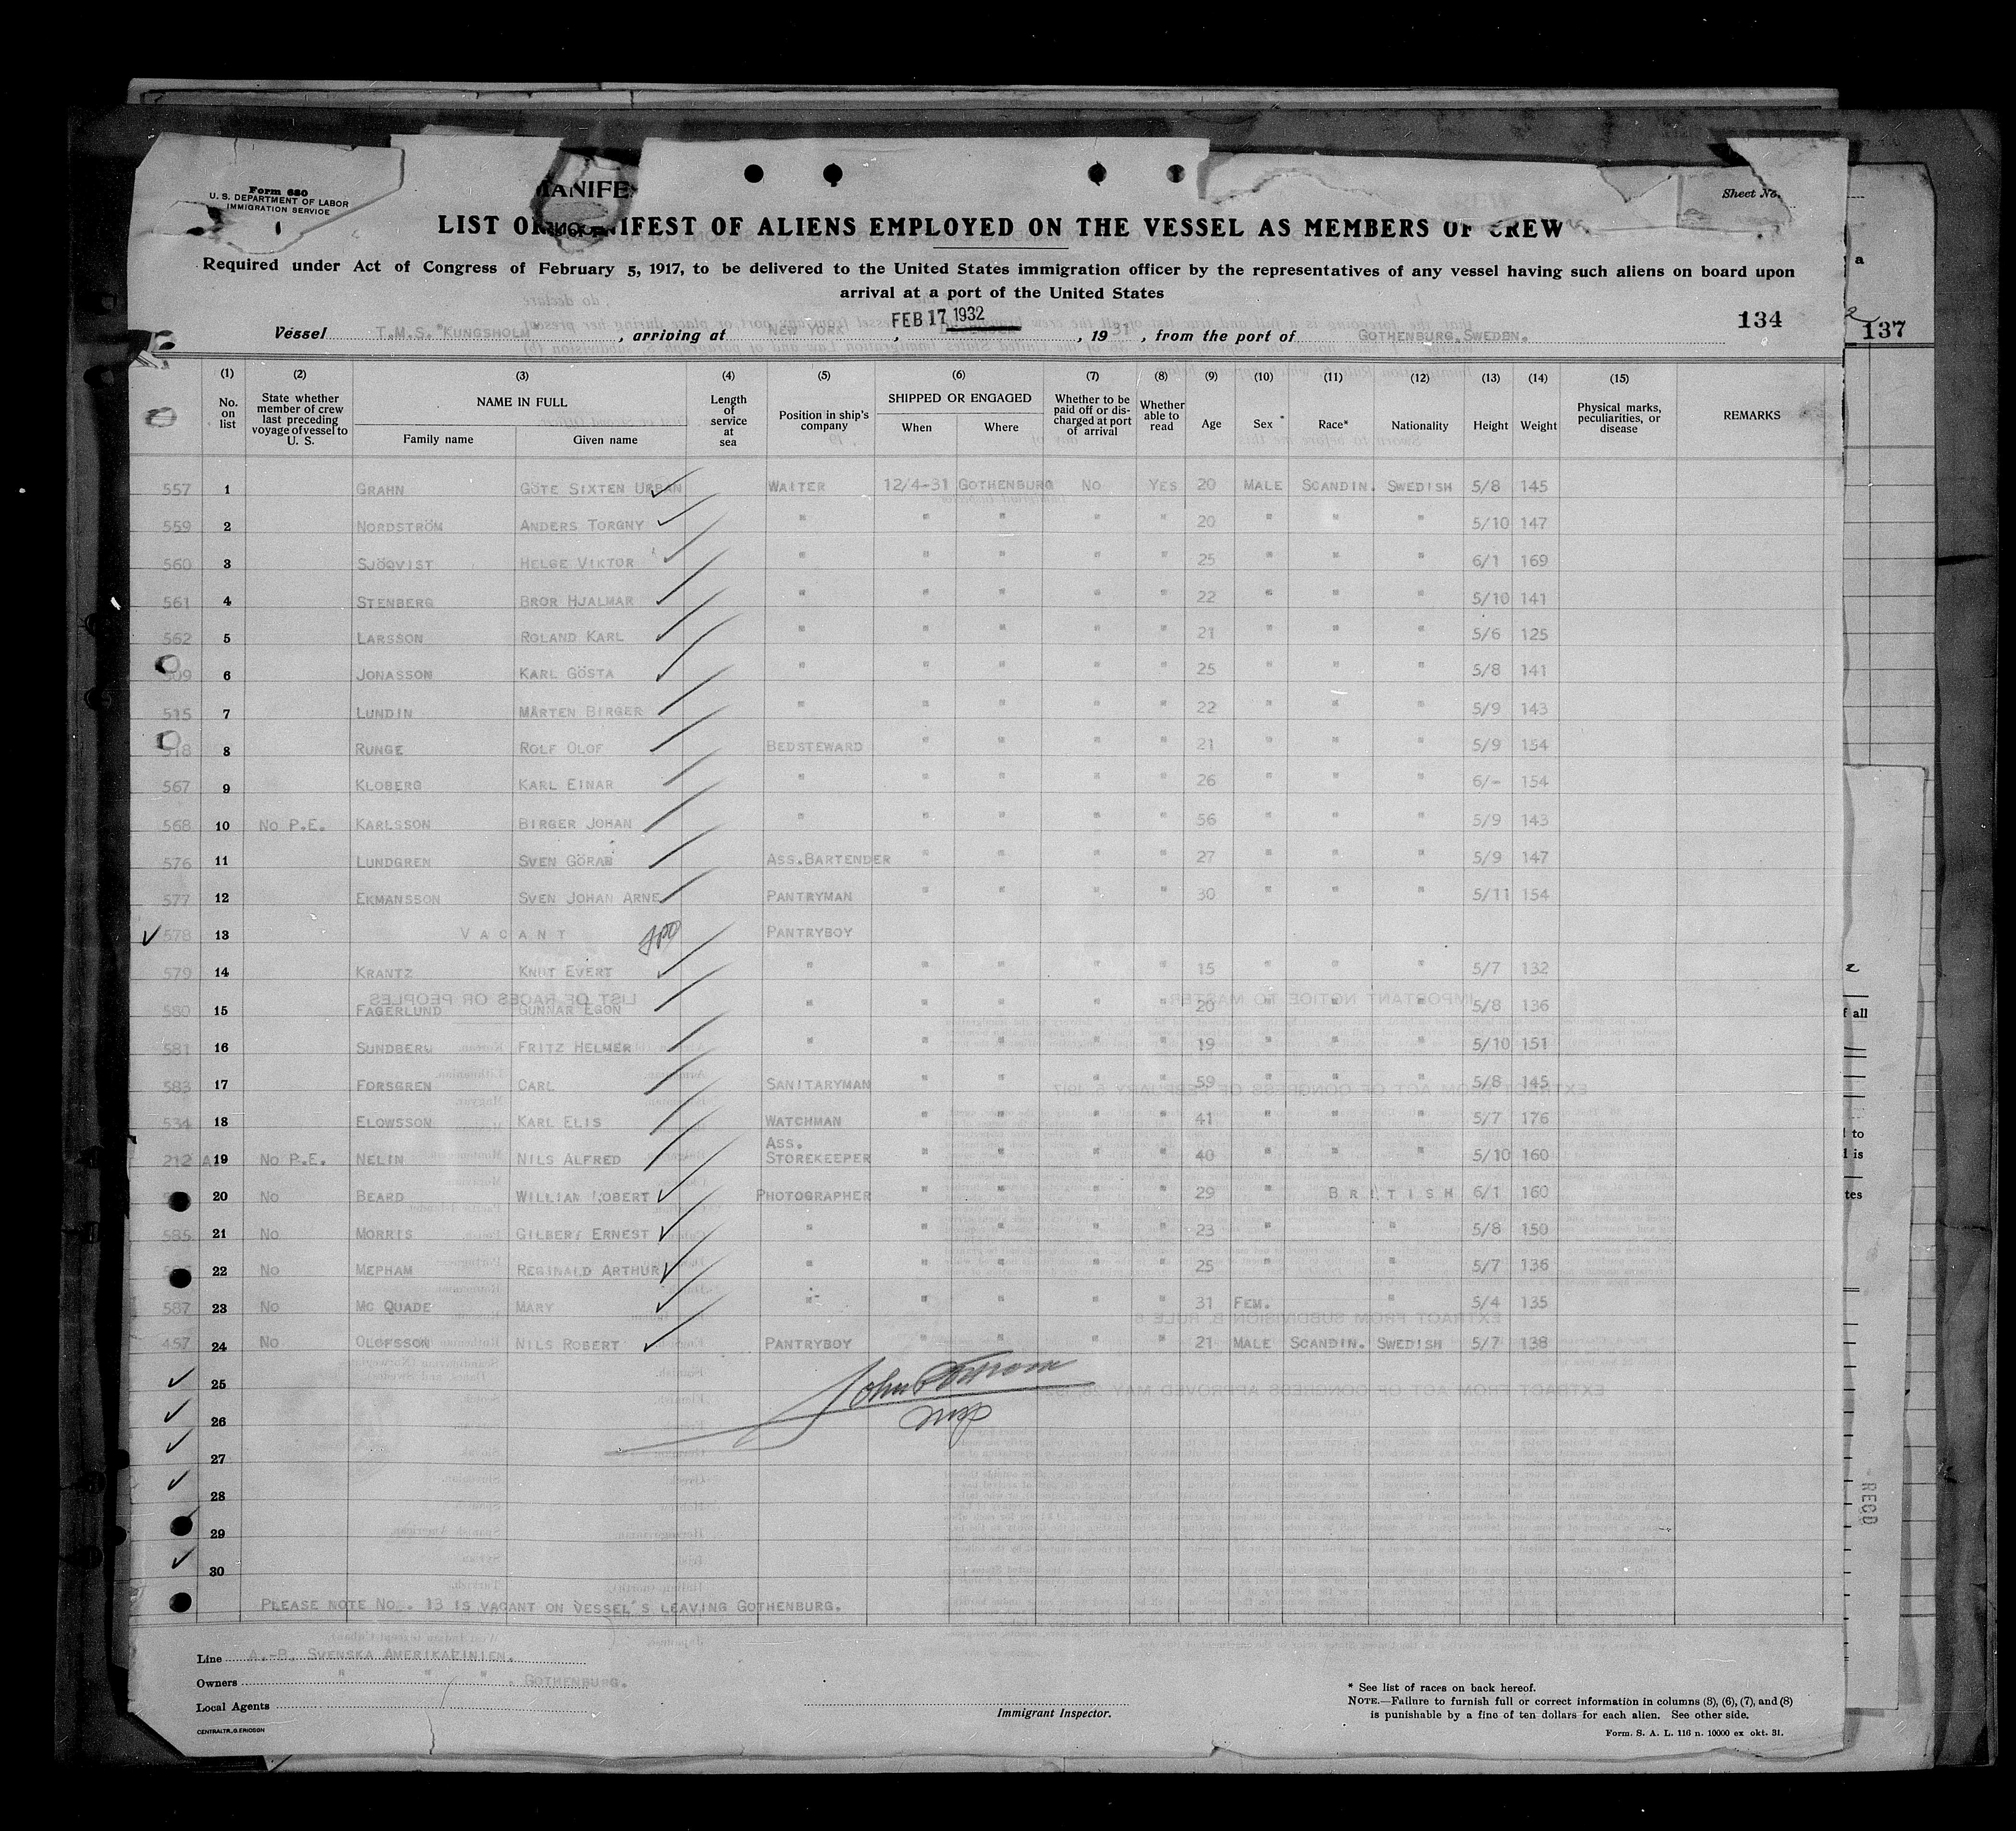 Form 680
U. S. DEPARTMENT OF LABOR
IMMIGRATION SERVICE
Sheet No.
LIST OR MANIFEST OF ALIENS EMPLOYED ON THE VESSEL AS MEMBERS OF CREW
Required under Act of Congress of February 5, 1917, to be delivered to the United States immigration officer by the representatives of any vessel having such aliens on board upon
arrival at a port of the United States
Vessel T.M.S."KUNGSHOLM" , arriving at NEW YORK , FEB 17 1932 , 1931 , from the port of GOTHENBURG.SWEDEN. 134
137
(1) (2) (3) (4) (5) (6) (7) (8) (9) (10) (11) (12) (13) (14) (15)
No. on list | State whether member of crew last preceding voyage of vessel to U. S. | NAME IN FULL Family name Given name | Length of service at sea | Position in ship's company | SHIPPED OR ENGAGED When Where | Whether to be paid off or discharged at port of arrival | Whether able to read | Age | Sex | Race* | Nationality | Height | Weight | Physical marks, peculiarities, or disease | REMARKS
557 1 GRAHN GÖTE SIXTEN URBAN WAITER 12/4-31 GOTHENBURG NO YES 20 MALE SCANDIN. SWEDISH 5/8 145
559 2 NORDSTRÖM ANDERS TORGNY " " " " " 20 " " " 5/10 147
560 3 SJÖQVIST HELGE VIKTOR " " " " " 25 " " " 6/1 169
561 4 STENBERG BROR HJALMAR " " " " " 22 " " " 5/10 141
562 5 LARSSON ROLAND KARL " " " " " 21 " " " 5/6 125
6 JONASSON KARL GÖSTA " " " " " 25 " " " 5/8 141
515 7 LUNDIN MÅRTEN BIRGER " " " " " 22 " " " 5/9 143
8 RUNGE ROLF OLOF BEDSTEWARD " " " " 21 " " " 5/9 154
567 9 KLOBERG KARL EINAR " " " " " 26 " " " 6/- 154
568 10 NO P.E. KARLSSON BIRGER JOHAN " " " " " 56 " " " 5/9 143
576 11 LUNDGREN SVEN GÖRAN ASS.BARTENDER " " " " 27 " " " 5/9 147
577 12 EKMANSSON SVEN JOHAN ARNE PANTRYMAN " " " " 30 " " " 5/11 154
578 13 VACANT PANTRYBOY
579 14 KRANTZ KNUT EVERT " " " " " 15 " " " 5/7 132
580 15 FAGERLUND GUNNAR EGON " " " " " 20 " " " 5/8 136
581 16 SUNDBERG FRITZ HELMER " " " " " 19 " " " 5/10 151
583 17 FORSGREN CARL SANITARYMAN " " " " 59 " " " 5/8 145
534 18 ELOWSSON KARL ELIS WATCHMAN " " " " 41 " " " 5/7 176
212 A 19 NO P.E. NELIN NILS ALFRED ASS. STOREKEEPER " " " " 40 " " " 5/10 160
20 NO BEARD WILLIAM ROBERT PHOTOGRAPHER " " " " 29 " BRITISH 6/1 160
585 21 NO MORRIS GILBERT ERNEST " " " " " 23 " " 5/8 150
22 NO MEPHAM REGINALD ARTHUR " " " " " 25 " " 5/7 136
587 23 NO MC QUADE MARY " " " " " 31 FEM. " 5/4 135
457 24 NO OLOFSSON NILS ROBERT PANTRYBOY " " " " 21 MALE SCANDIN. SWEDISH 5/7 138
25
26
27
28
29
30
PLEASE NOTE NO. 13 IS VACANT ON VESSEL'S LEAVING GOTHENBURG.
Line A.-B. SVENSKA AMERIKALINIEN.
Owners " " " . GOTHENBURG.
Local Agents
CENTRALTR., G. ERICSON
Immigrant Inspector.
* See list of races on back hereof.
NOTE.—Failure to furnish full or correct information in columns (3), (6), (7), and (8)
is punishable by a fine of ten dollars for each alien. See other side.
Form. S. A. L. 116 n. 10000 ex okt. 31.
RECD